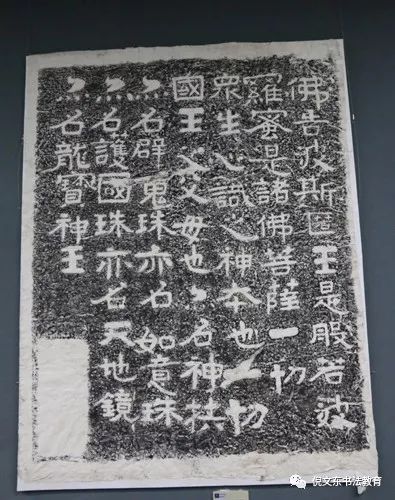 佛告波斯匿王是般若波
羅蜜是諸佛菩薩一切
眾生心識之神本也一切
國王之父母也亦名神
亦名辟鬼珠亦名如意珠
亦名護國珠亦名天地鏡
亦名龍寶神王
倪文东书法教育